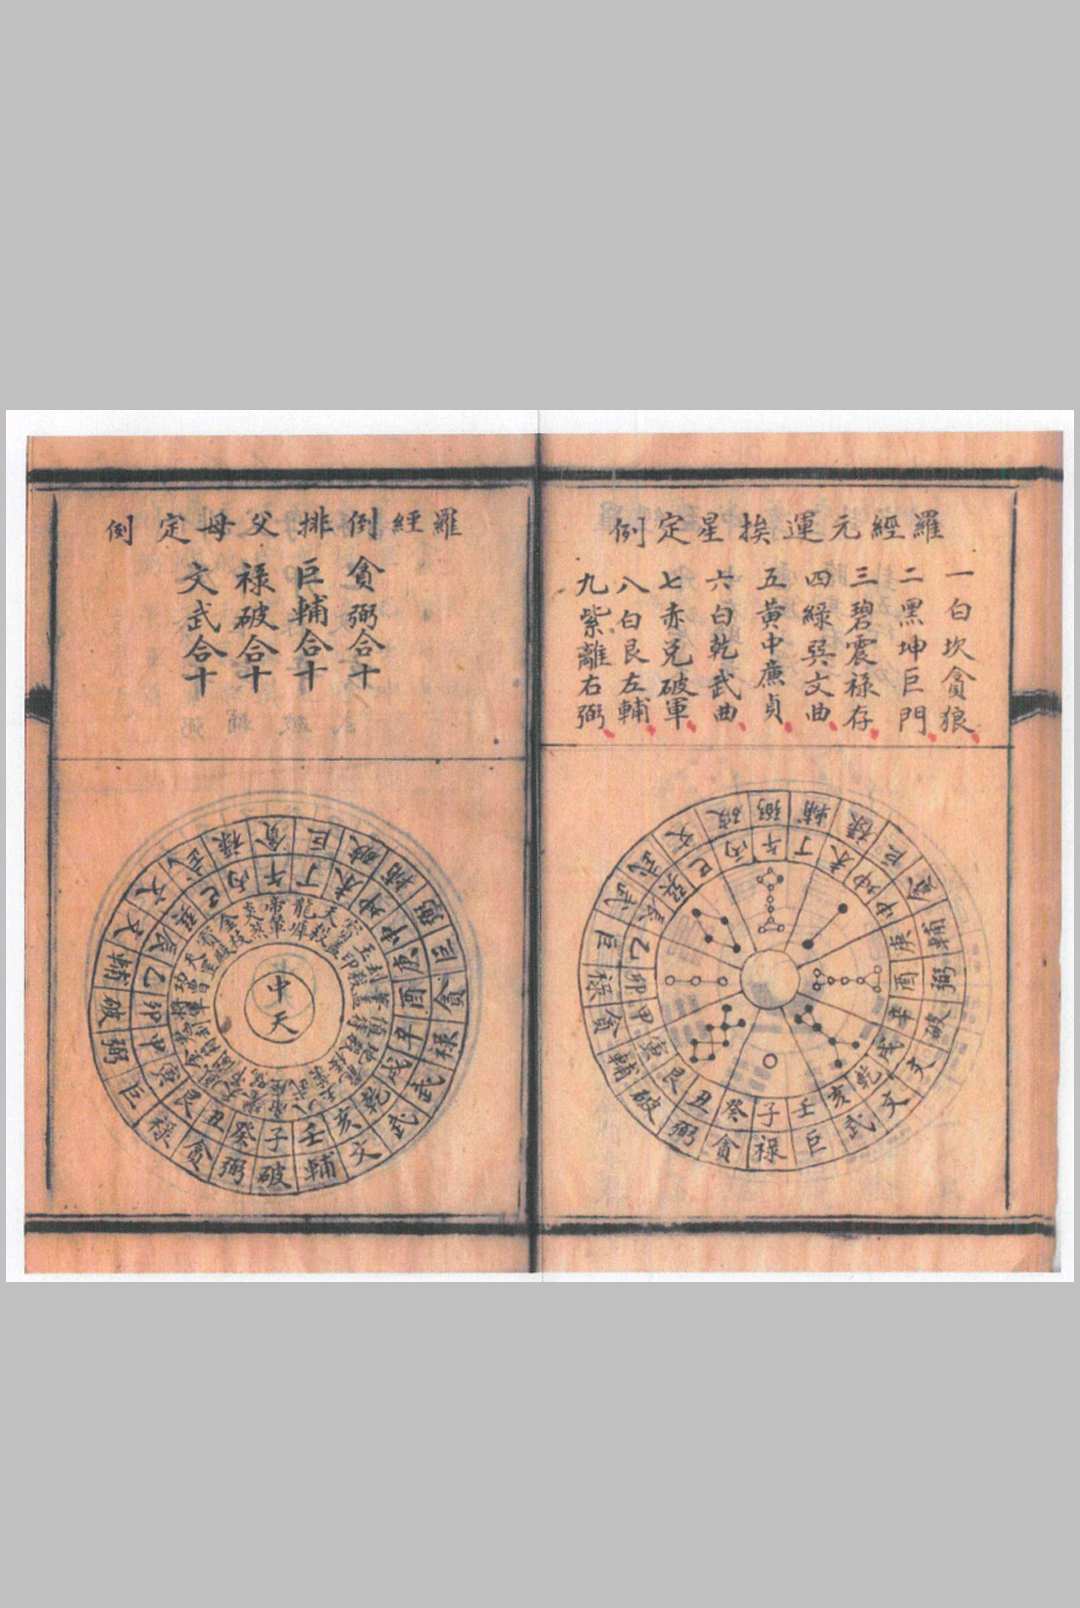 羅經元運挨星定例
一白坎貪狼
二黑坤巨門
三碧震祿存
四綠巽文曲
五黃中廉貞
六白乾武曲
七赤兌破軍
八白艮左輔
九紫離右弼
弼輔破巨貪輔弼破文文武巨祿貪弼破輔貪祿巨武武文破
午丁未坤申庚酉辛戌乾亥壬子癸丑艮寅甲卯乙辰巽巳丙
羅經倒排父母定例
貪弼合十
巨輔合十
祿破合十
文武合十
貪巨破輔弼巨貪祿武武文輔破弼貪祿巨弼破輔文文武祿
午丁未坤申庚酉辛戌乾亥壬子癸丑艮寅甲卯乙辰巽巳丙
中天